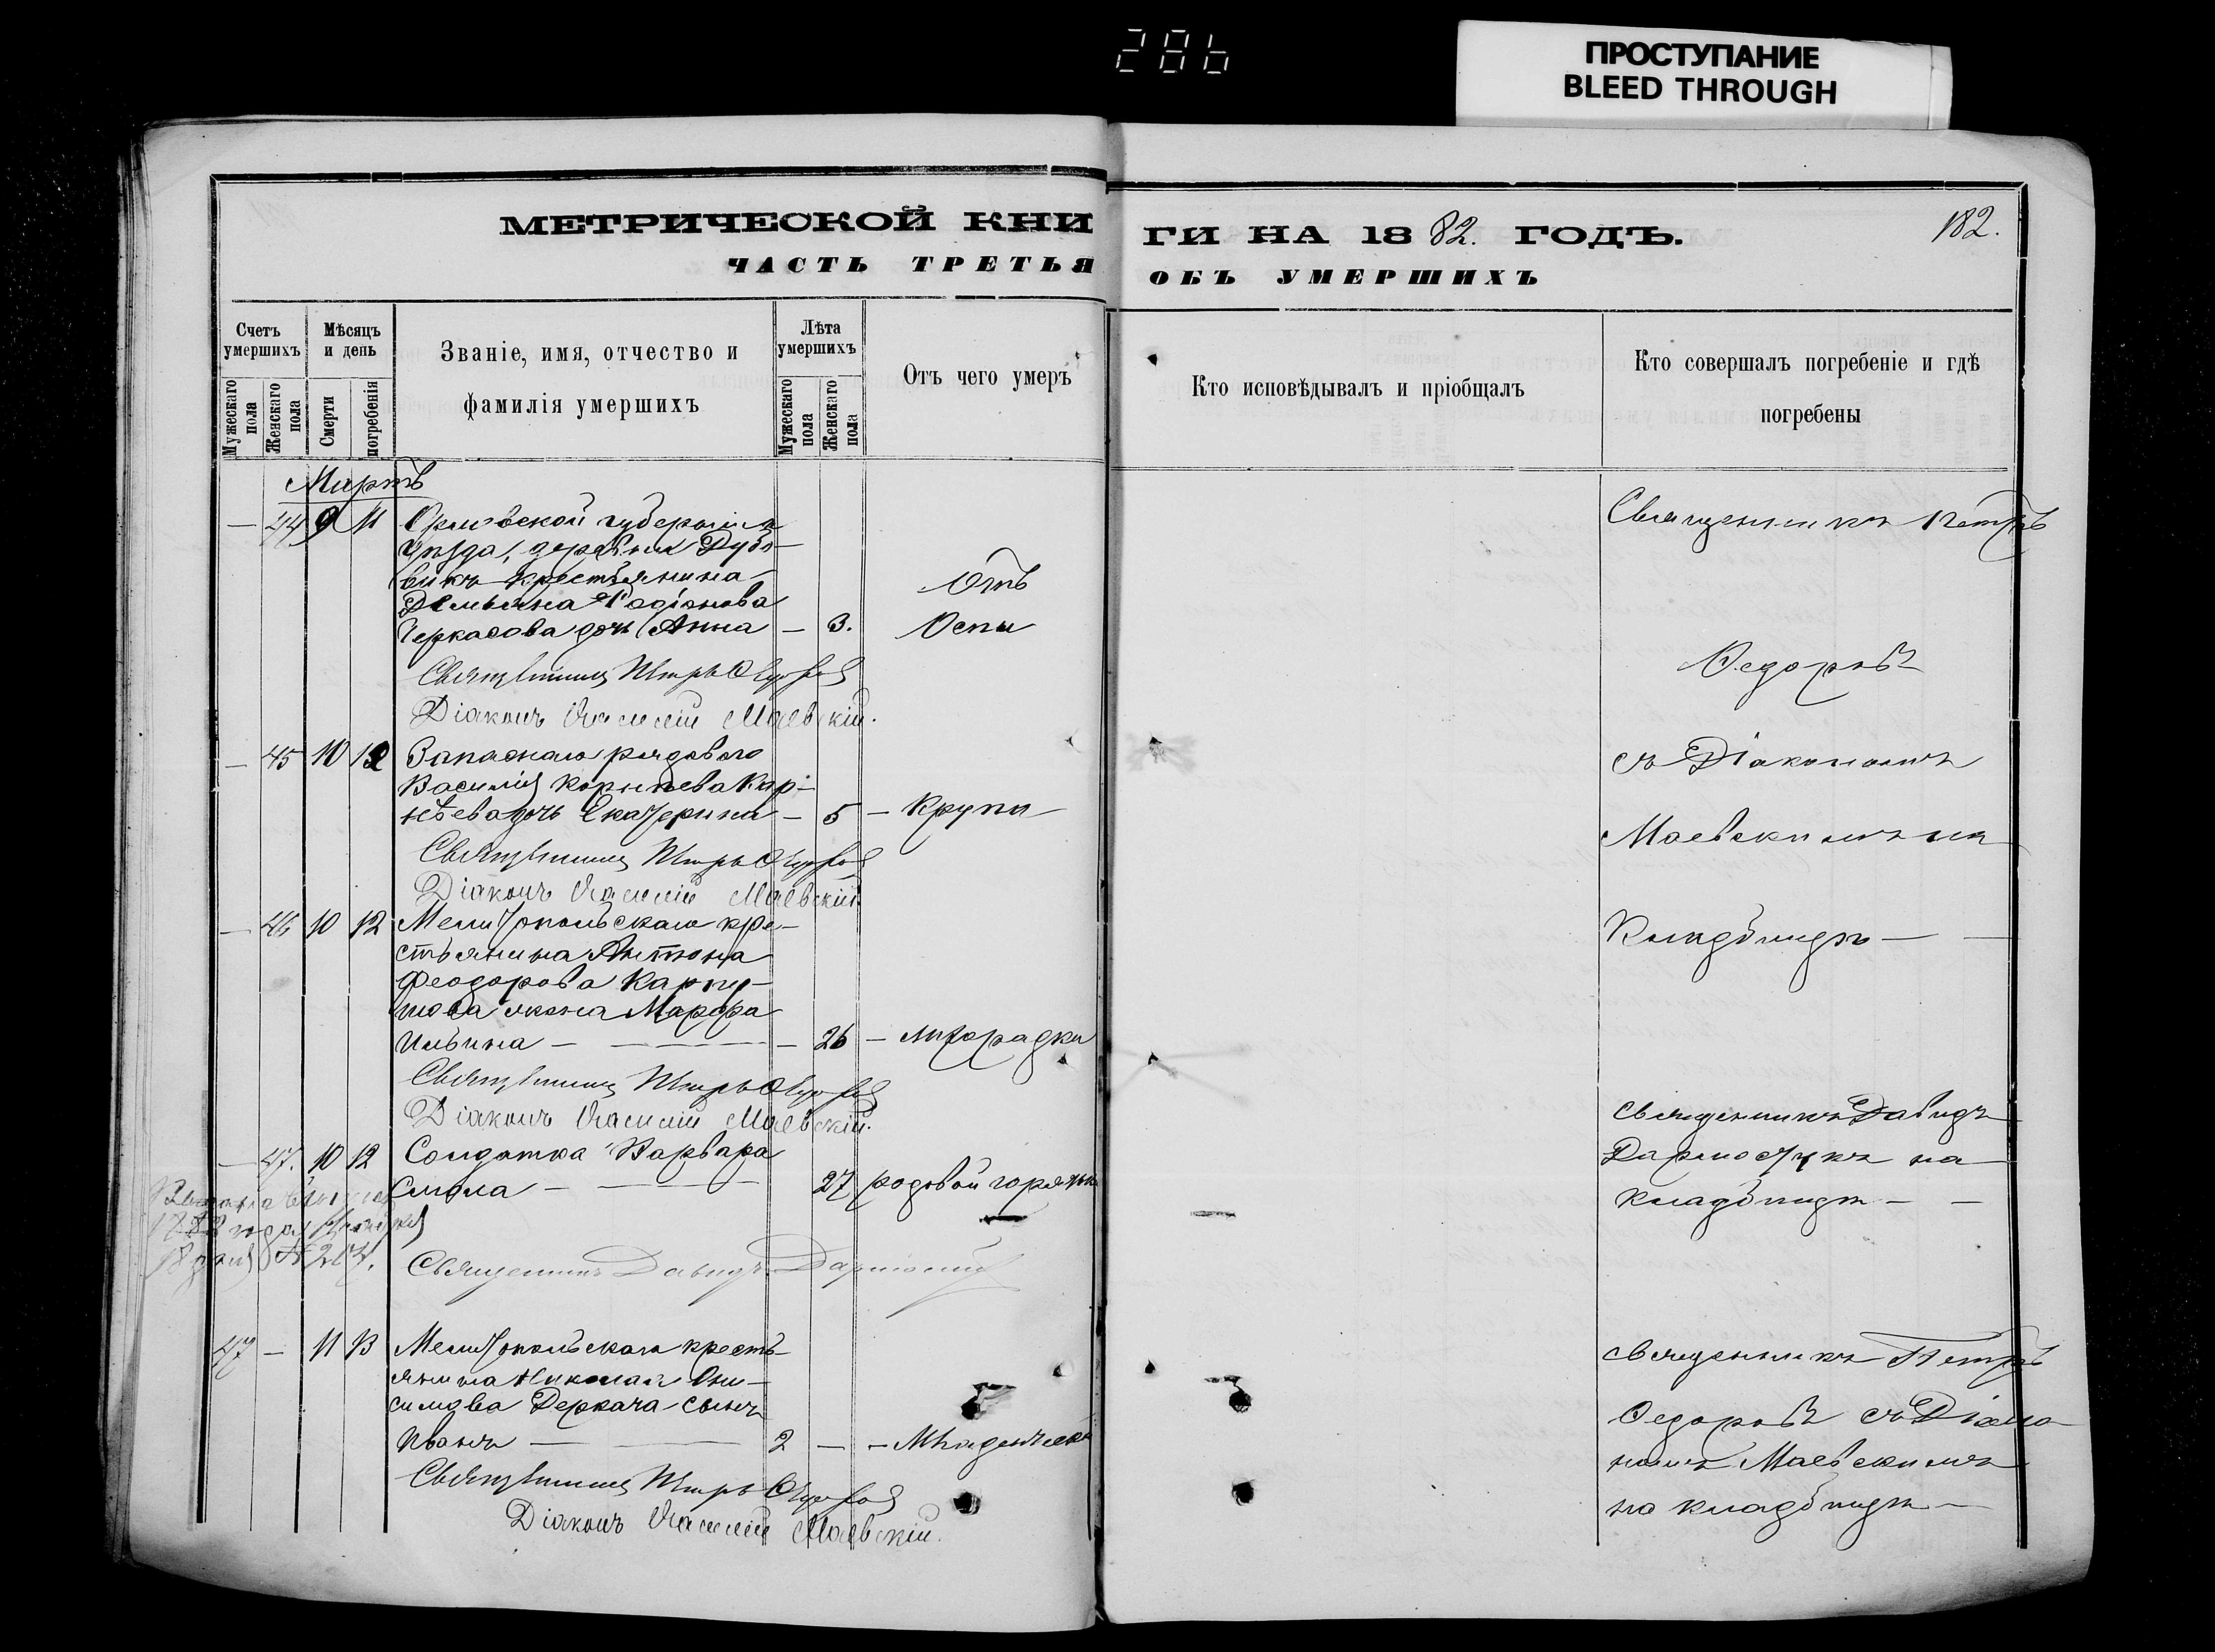 286
ПРОСТУПАНИЕ
BLEED THROUGH
МЕТРИЧЕСКОЙ КНИ
ГИ НА 1882. ГОДЪ.
182.
ЧАСТЬ ТРЕТЬЯ
ОБЪ УМЕРШИХЪ
Счетъ умершихъ
Мужескаго пола
Женскаго пола
Мѣсяцъ и день
Смерти
погребенія
Званіе, имя, отчество и
фамилія умершихъ
Лѣта умершихъ
Мужескаго пола
Женскаго пола
Отъ чего умеръ
Кто исповѣдывалъ и пріобщалъ
Кто совершалъ погребеніе и гдѣ
погребены
Мартъ
— 44 9 11 Орловской губерніи
уѣзда, деревни Дубо-
викъ крестьянина
Демьяна Родіонова
Черкасова дочь Анна — 3.
Отъ
Оспы
Священникъ Петръ Ѳедоровъ
Діаконъ Василій Маевскій.
— 45 10 12 Запаснаго рядового
Василія Корнѣева Кор-
нѣева дочь Екатерина — 5 — Крупа
Священникъ Петръ Ѳедоровъ
Діаконъ Василій Маевскій.
— 46 10 12 Мелитопольскаго кре-
стьянина Антона
Феодорова Карпу-
шова жена Марфа
Ильина — — 26 — лихорадки
Священникъ Петръ Ѳедоровъ
Діаконъ Василій Маевскій.
— 47. 10 12 Солдатка Варвара
Смола — 27 родовой горячки
1882 года
18 дня №
Священникъ Давидъ
47 — 11 13 Мелитопольскаго кресть-
янина Николая Они-
симова Деркача сынъ
Иванъ — 2 — — Младенческ
Священникъ Петръ Ѳедоровъ
Діаконъ Василій Маевскій.
Священникъ Петръ
Ѳедоровъ
съ Діакономъ
Маевскимъ на
Кладбищѣ —
священникъ Давидъ
на
кладбищѣ — —
священникъ Петръ
Ѳедоровъ съ Діако
номъ Маевскимъ
на кладбищѣ —